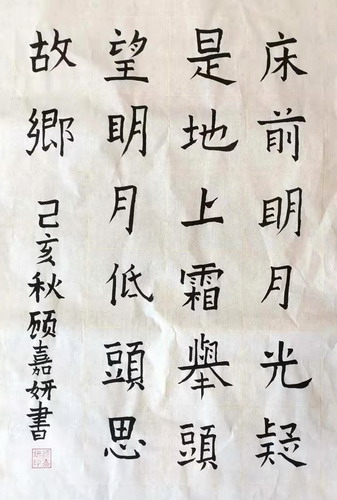 床前明月光疑
是地上霜舉頭
望明月低頭思
故鄉
己亥秋顾嘉妍書